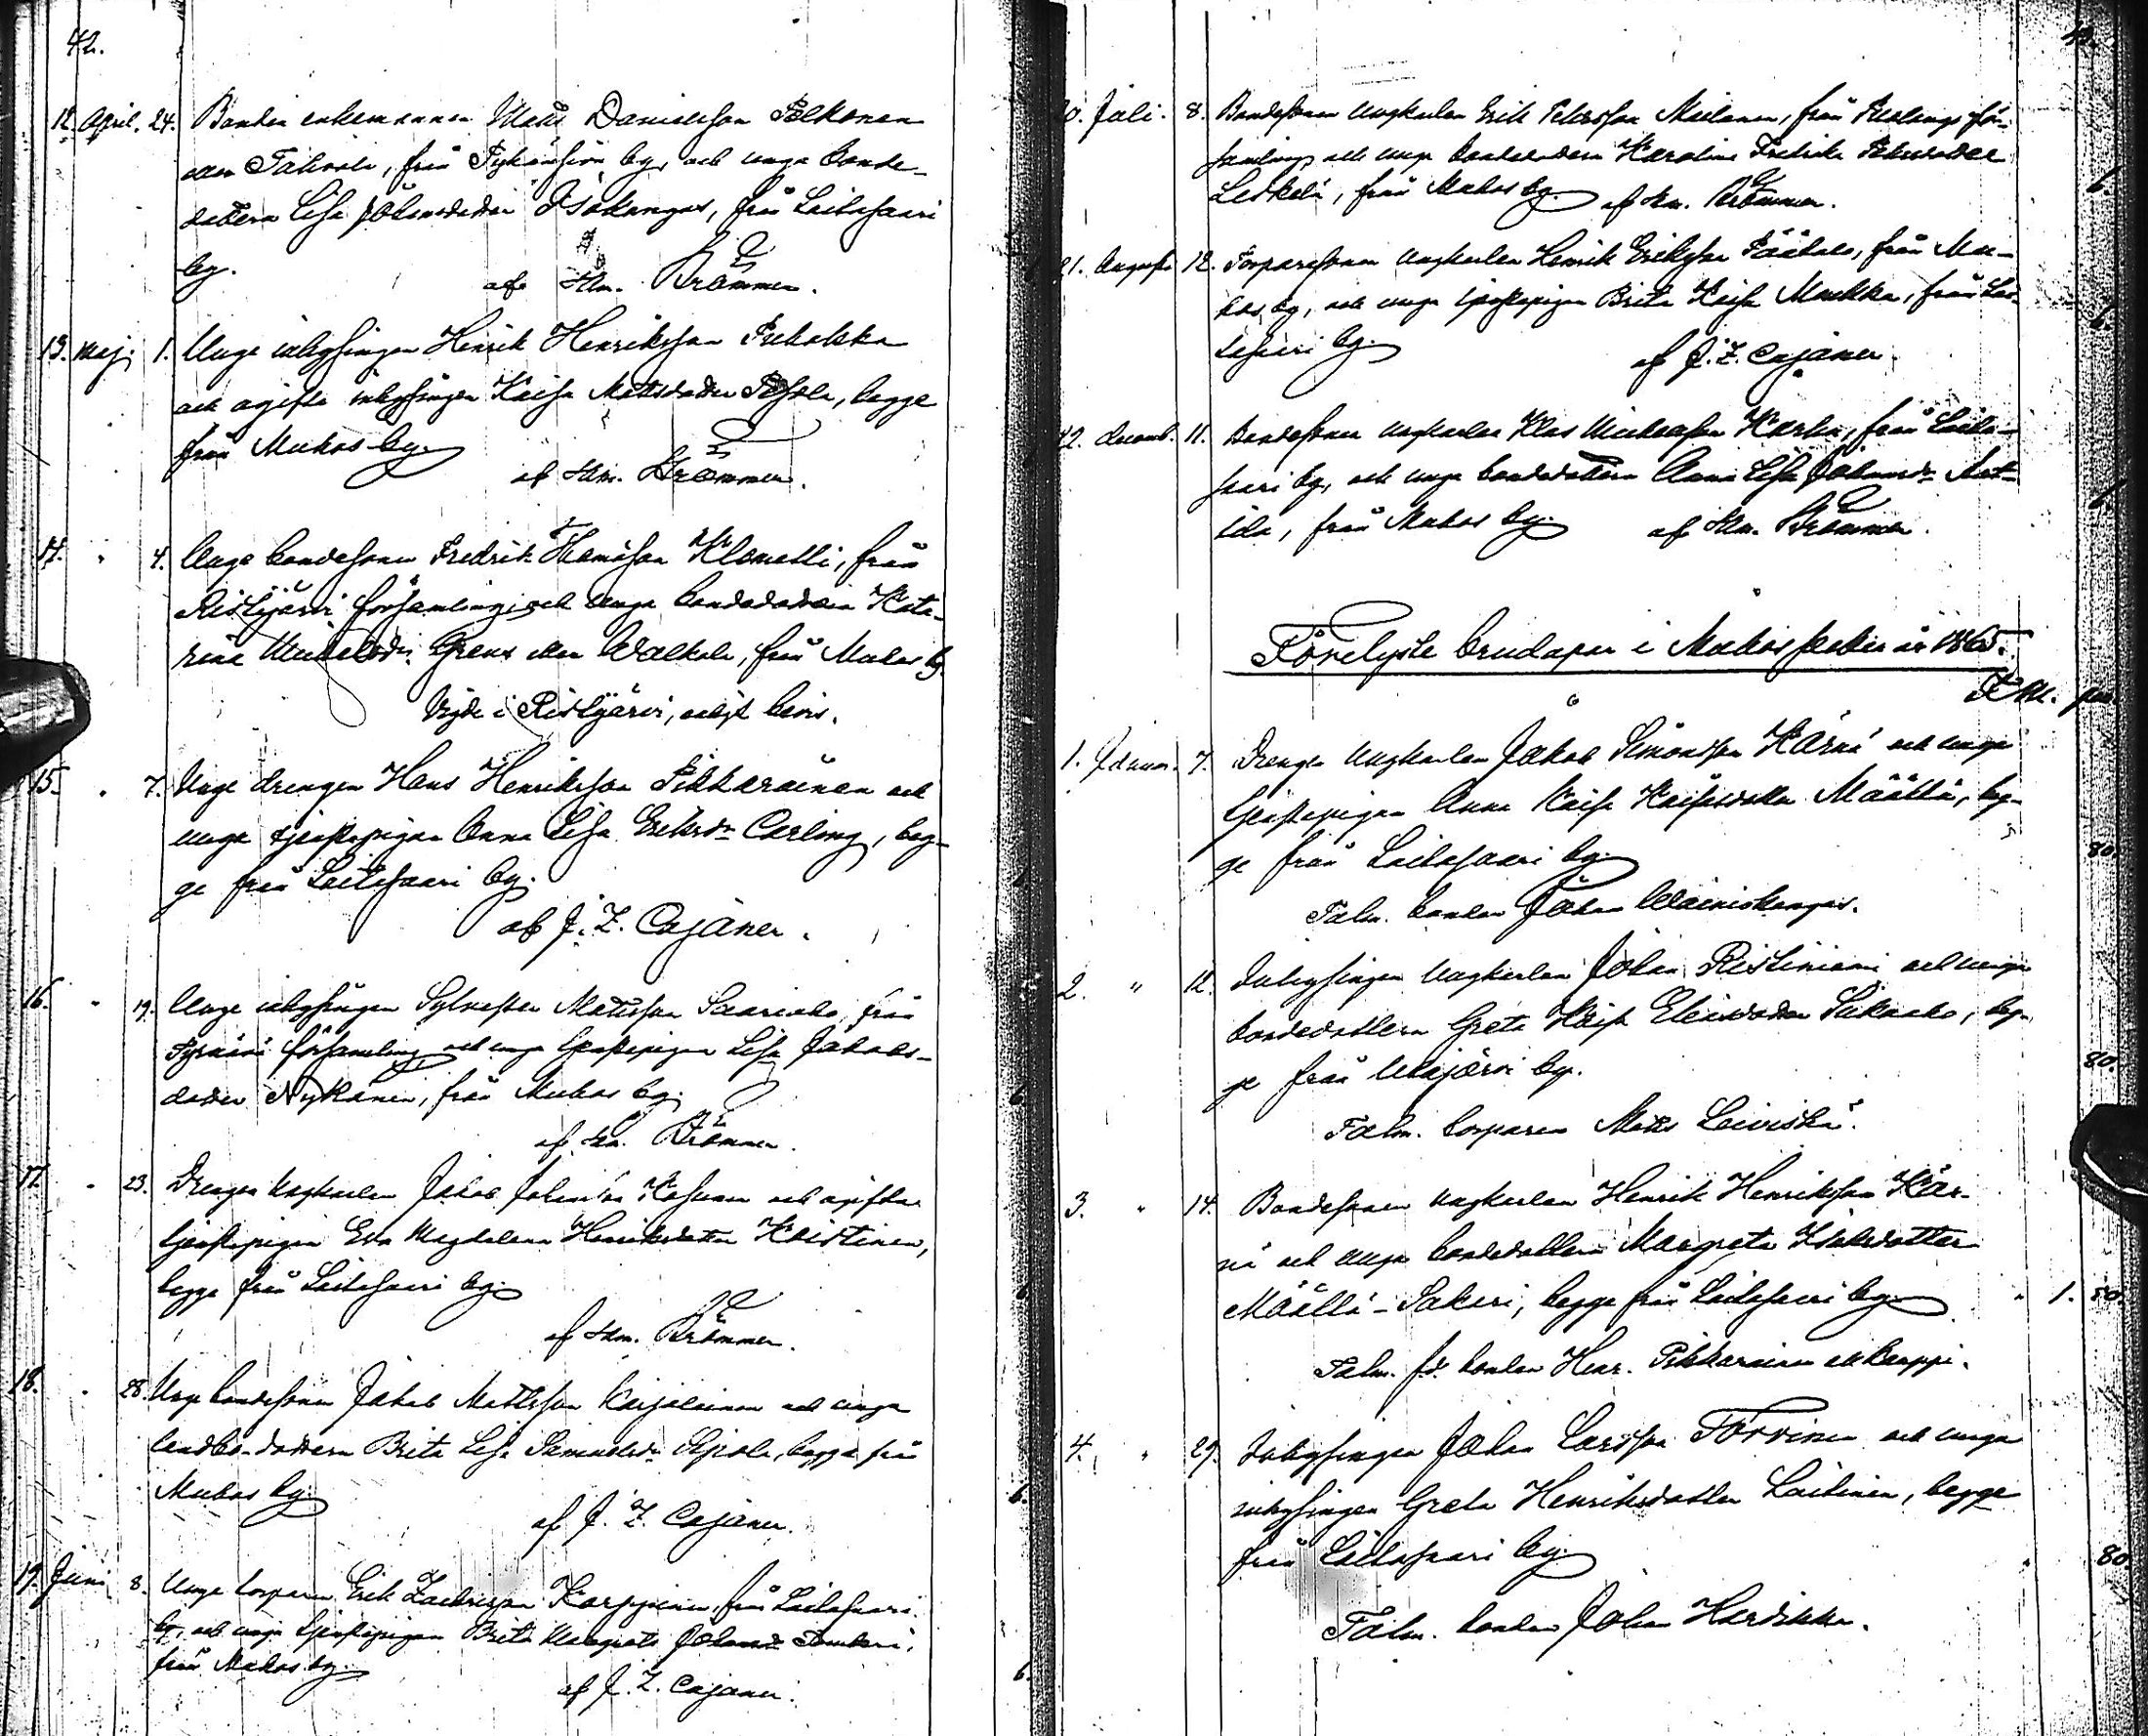 42.
12. April. 24. Bonden enkemannen Matts Danielsson Pelkonen
eller Tahvola, från Sykönsivu by, och unga bonde-
dottern Lisa Johansdotter Isokangas, från Laitasaari
by.
af Klm. Krämmer.
13. Maj. 1. Unge inhysingen Henrik Henriksson
och ogifta inhysingen Kaisa Mattsdotter, begge
från Muhos by.
af Klm. Krämmer.
14. " 4. Unge bondesonen Fredrik Thomasson Klemetti, från
Ristijärvi församling och unga bondedottern Kata-
rina Grens eller Walkola, från Muhos by.
Vigde i Ristijärvi, enligt bevis.
15. " 7. Unge drengen Hans Henriksson Pikkarainen och
unga tjenstepigan Anna Lisa Eriksdr Carling, beg-
ge från Laitasaari by.
af J. Z. Cajaner.
16. " 19. Unge inhysingen Sylvester Mattsson Saarenaho, från
Tyrnävä församling och unga tjenstepigan Lisa Jakobs-
dotter Nykänen, från Muhos by.
af Klm. Krämmer.
17. " 23. Drengen ungkarlen Jakob Johansson Kosunen och ogifta
tjenstepigan Eva Magdalena Henriksdotter Koistinen,
begge från Laitasaari by.
af Klm. Krämmer.
18. " 28. Unge bondesonen Jakob Mattsson Karjalainen och unga
landbo-dottern Brita Lisa Samuelsdr Seppola, begge från
Muhos by.
af J. Z. Cajaner.
19. Juni 8. Unge torparen Erik Zachrisson Karppinen, från Laitasaari
by, och unga tjenstepigan Brita Margreta Johansdr
från Muhos by.
af J. Z. Cajaner.
20. Juli. 8. Bondesonen ungkarlen Erik Petersson Moilanen, från för-
samling och unga bondedottern Karolina Fredrika
Leskelä, från Muhos by. af Klm. Krämmer.
21. Augusti 12. Torparesonen ungkarlen Henrik Eriksson Päätalo, från Mu-
hos by, och unga tjenstepigan Brita Kaisa Markka, från Lai-
tasaari by.
af J. Z. Cajaner.
22. Decemb. 11. Bondesonen ungkarlen Klas Karhu, från Laita-
saari by, och unga bondedottern Anna Lisa Johansdr
från Muhos by. af Klm. Krämmer.
Förelyste brudapar i Muhos socken år 1865.
R. M. pen.
1. Januar. 7. Drengen ungkarlen Jakob Simonsson Kärnä och unga
tjenstepigan Anna Kaisa Kaisasdotter Määttä, beg-
ge från Laitasaari by. 80.
Talm. bonden Johan Wäiniskangas.
2. " 12. Inhysingen ungkarlen Johan Ristiniemi och unga
bondedottern Greta Kaisa Eliasdotter Sakarko, beg-
ge från Utajärvi by. 80.
Talm. torparen Matts Leiviskä.
3. " 14. Bondesonen ungkarlen Henrik Henriksson Kär-
nä och unga bondedottern Margreta Isaksdotter
Määttä-Sakeri, begge från Laitasaari by. " 1. 50.
Talm. fd. bonden Henr. Pikkarainen
4. " 29. Inhysingen Johan Larsson Torvinen och unga
inhysingen Greta Henriksdotter Laitinen, begge
från Laitasaari by. " 80.
Talm. bonden Johan Hardikka.